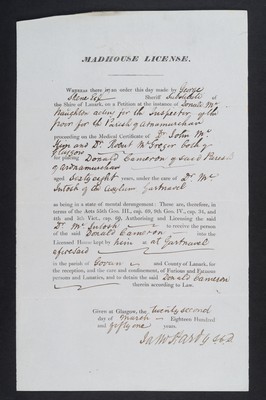 MADHOUSE LICENSE.
WHEREAS there is an order this day made by George
Skene Esq Sheriff Substitute of
the Shire of Lanark, on a Petition at the instance of Donald Mc
Naughter acting for the Inspector of the
poor for the Parish of Ardnamurchan
proceeding on the Medical Certificate of Dr John Mc
and Dr Robert McGregor both of
Glasgow
for placing Donald Cameron of said Parish
of Ardnamurchan
aged Sixty eight years, under the care of Dr Mc
Intosh of the Asylum Gartnavel
as being in a state of mental derangement: These are, therefore, in
terms of the Acts 55th Geo. III., cap. 69, 9th Geo. IV., cap. 34, and
4th and 5th Vict., cap. 60, Authorising and Licensing the said
Dr McIntosh to receive the person
of the said Donald Cameron into the
Licensed House kept by him at Gartnavel
aforesaid
in the parish of Govan and County of Lanark, for
the reception, and the care and confinement, of Furious and Fatuous
persons and Lunatics, and to detain the said Donald Cameron
therein according to Law.
Given at Glasgow, the twenty second
day of March Eighteen Hundred
and fifty one years.